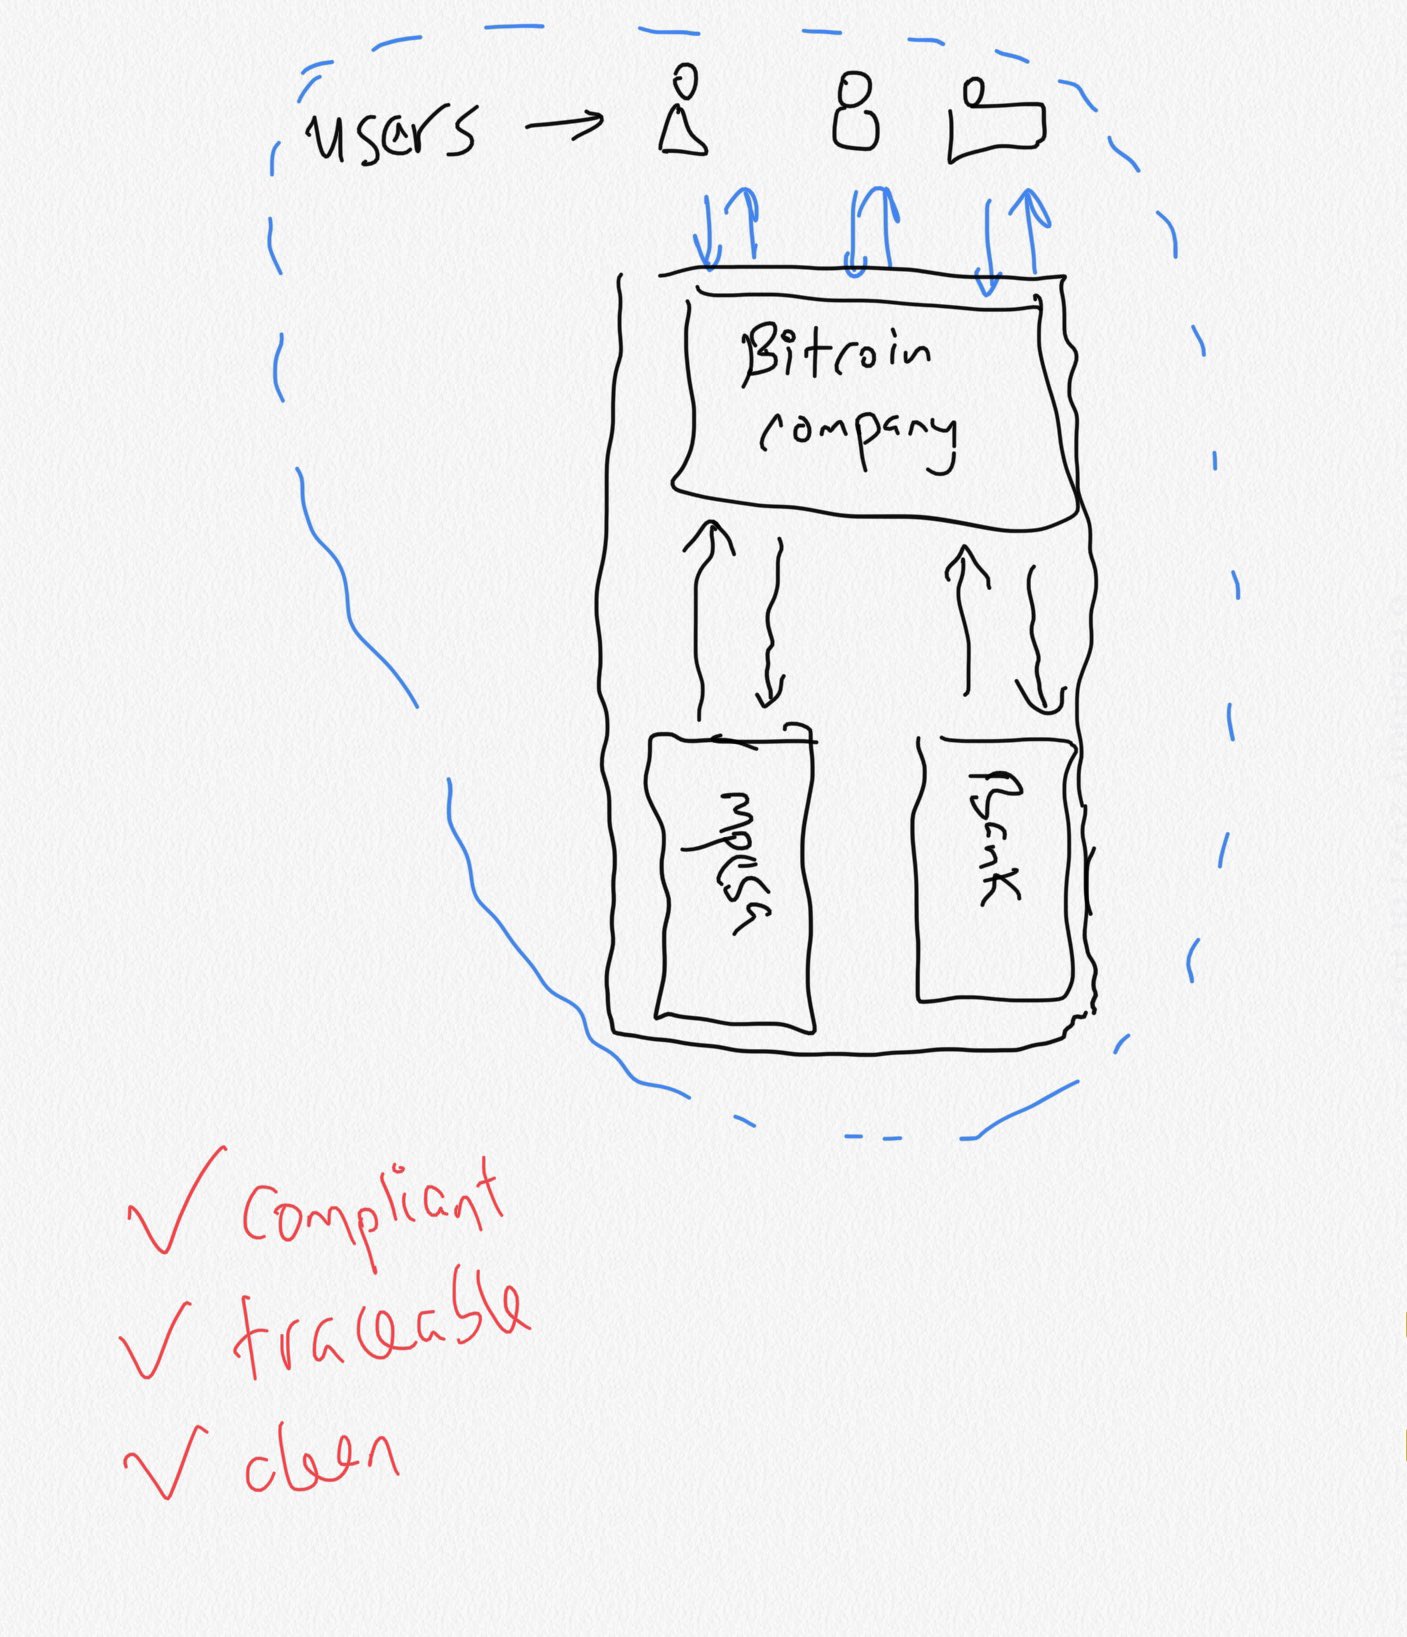 users →
Bitcoin
company
mpesa
Bank
✓ compliant
✓ traceable
✓ clean